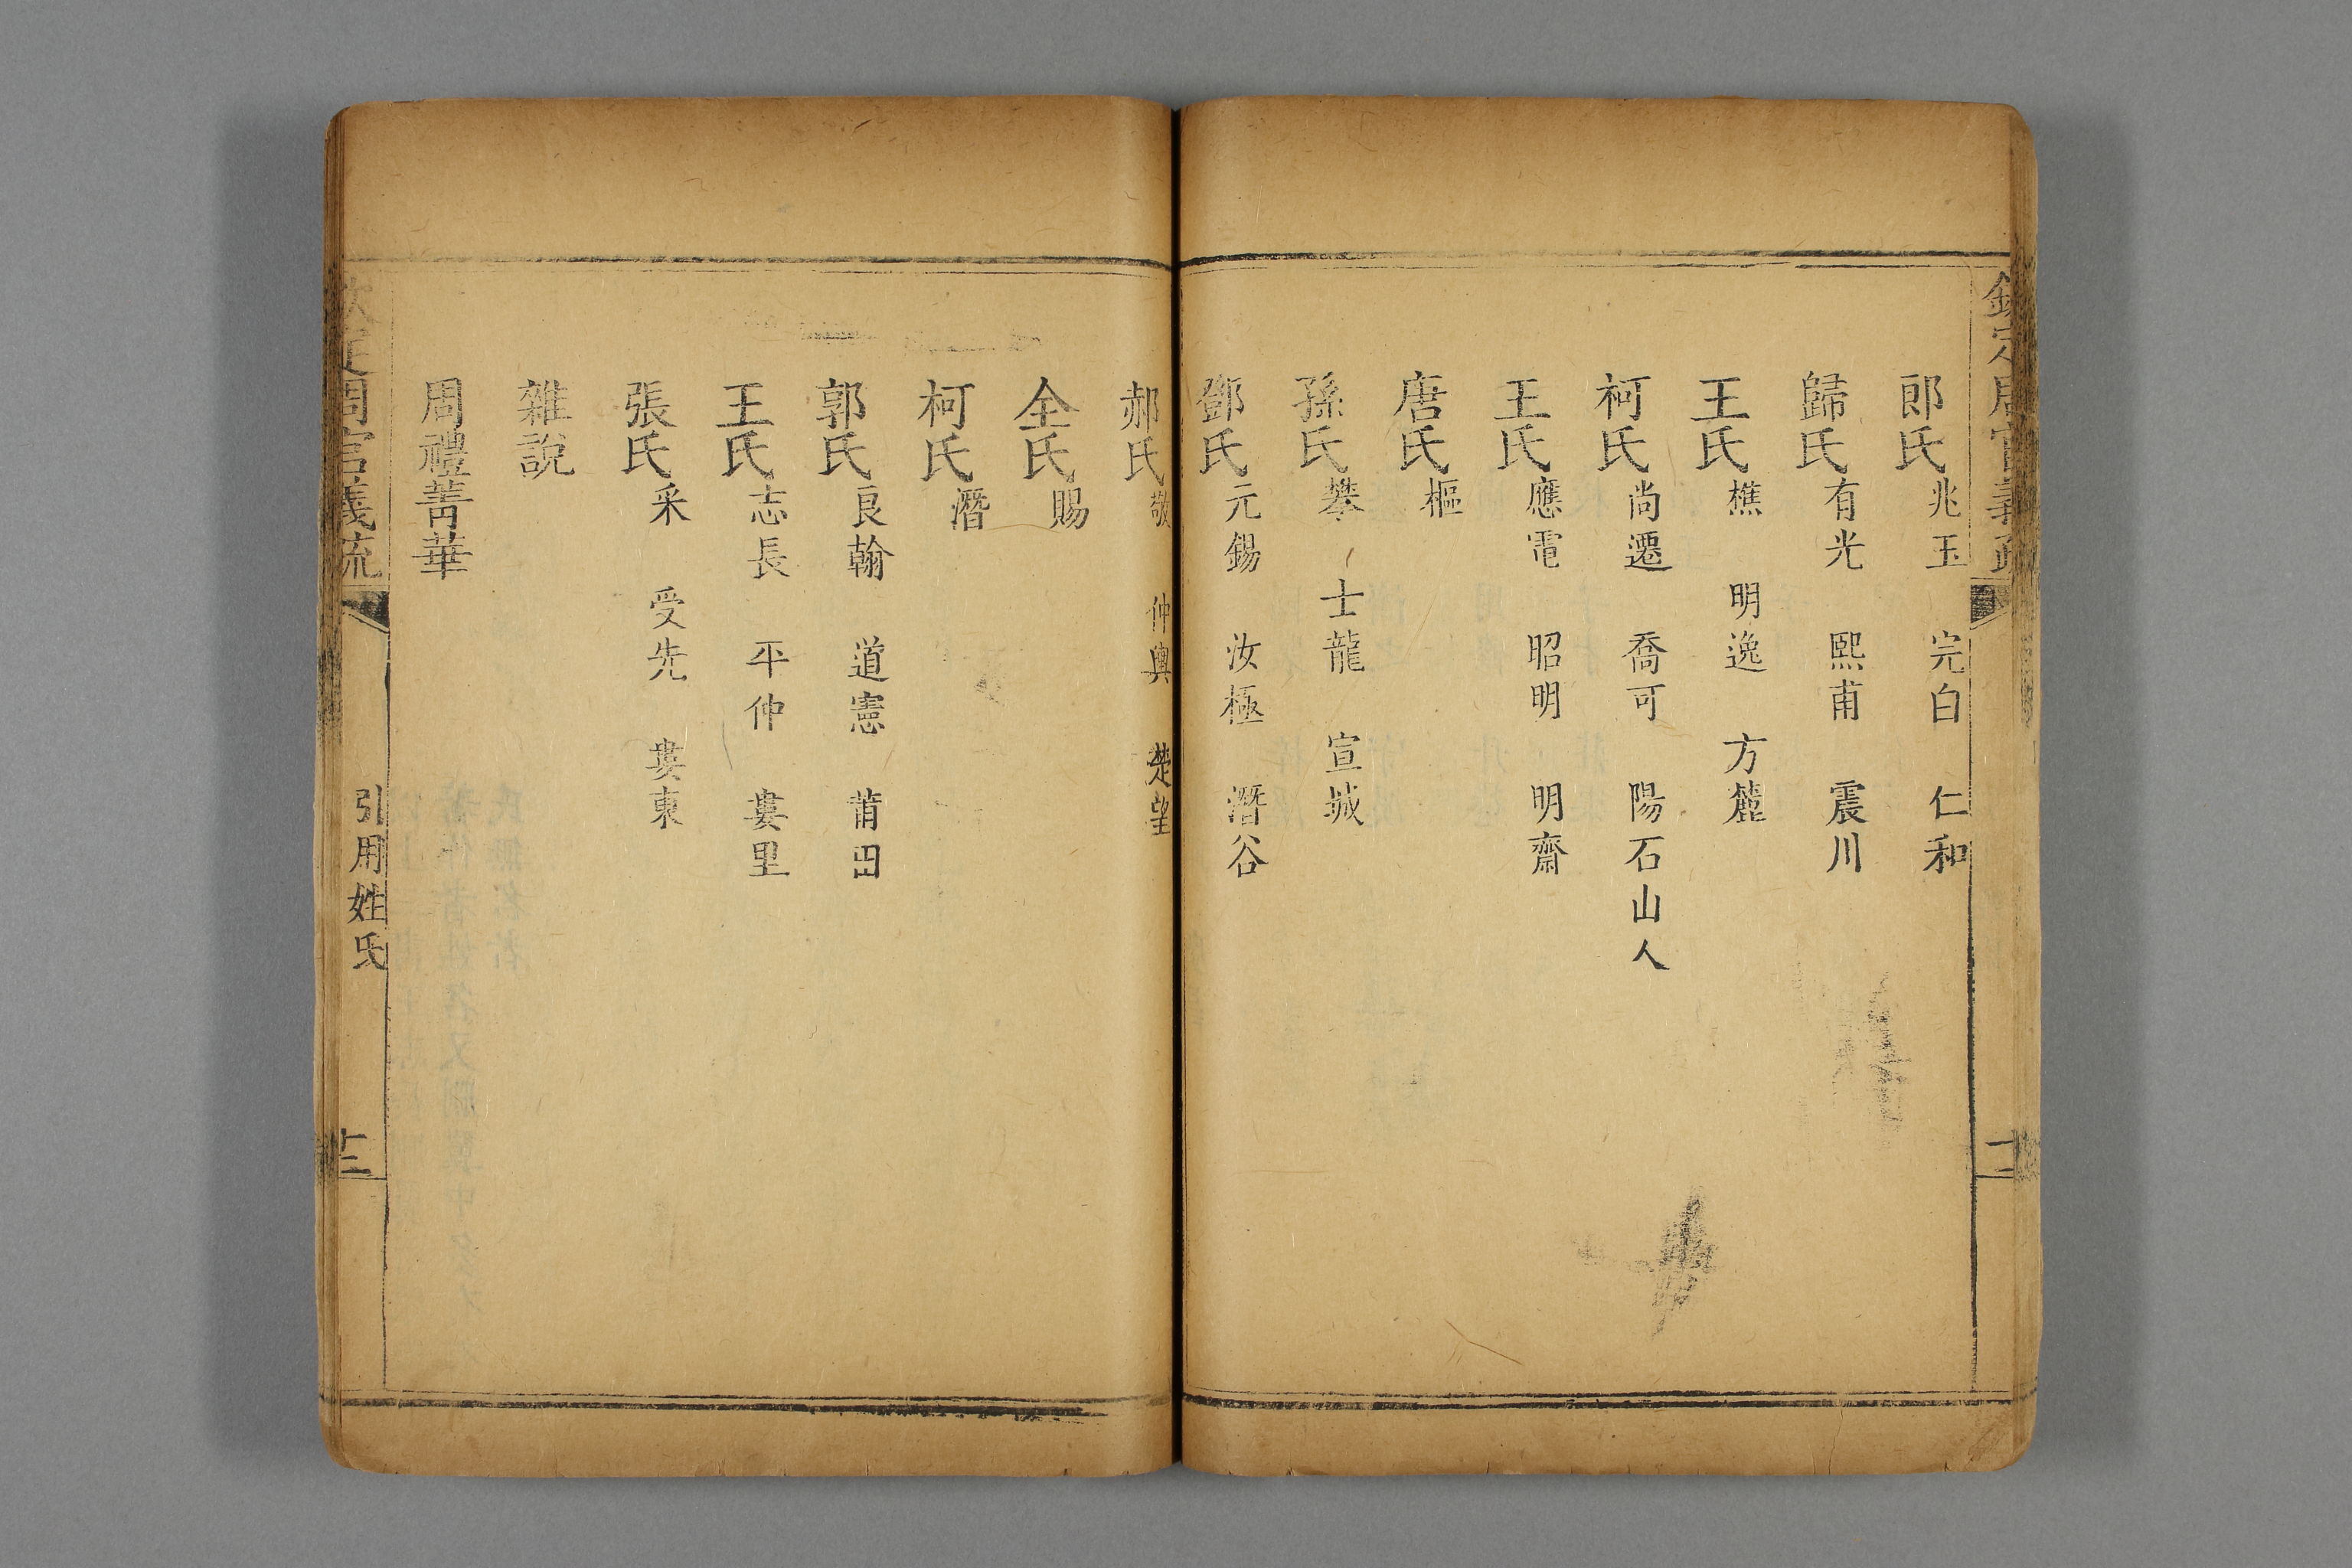 欽定周官義疏
郎氏兆玉 完白 仁和
歸氏有光 熙甫 震川
王氏樵 明逸 方麓
柯氏尚遷 喬可 陽石山人
王氏應電 昭明 明齋
唐氏樞
孫氏攀 士龍 宣城
鄧氏元錫 汝極 潛谷
郝氏敬 仲輿 楚望
全氏賜
柯氏潛
郭氏良翰 道憲 莆田
王氏志長 平仲 婁里
張氏采 受先 婁東
雜說
周禮菁華
欽定周官義疏 引用姓氏